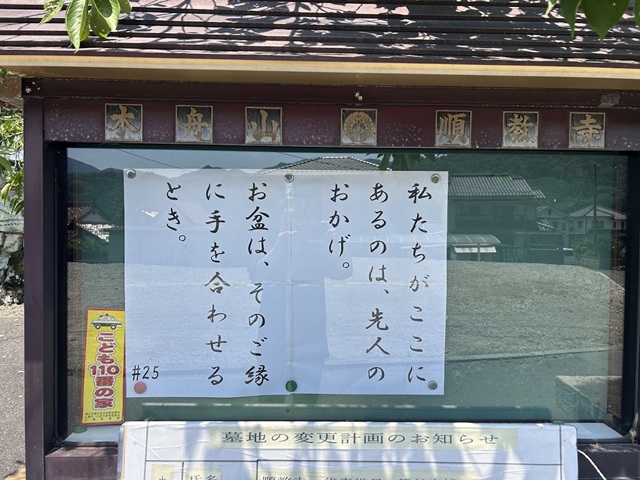 本舟山 順教寺
私たちがここに
あるのは、先人の
おかげ。
お盆は、そのご縁
に手を合わせる
とき。
#25
こども
110番の家
墓地の変更計画のお知らせ
氏名